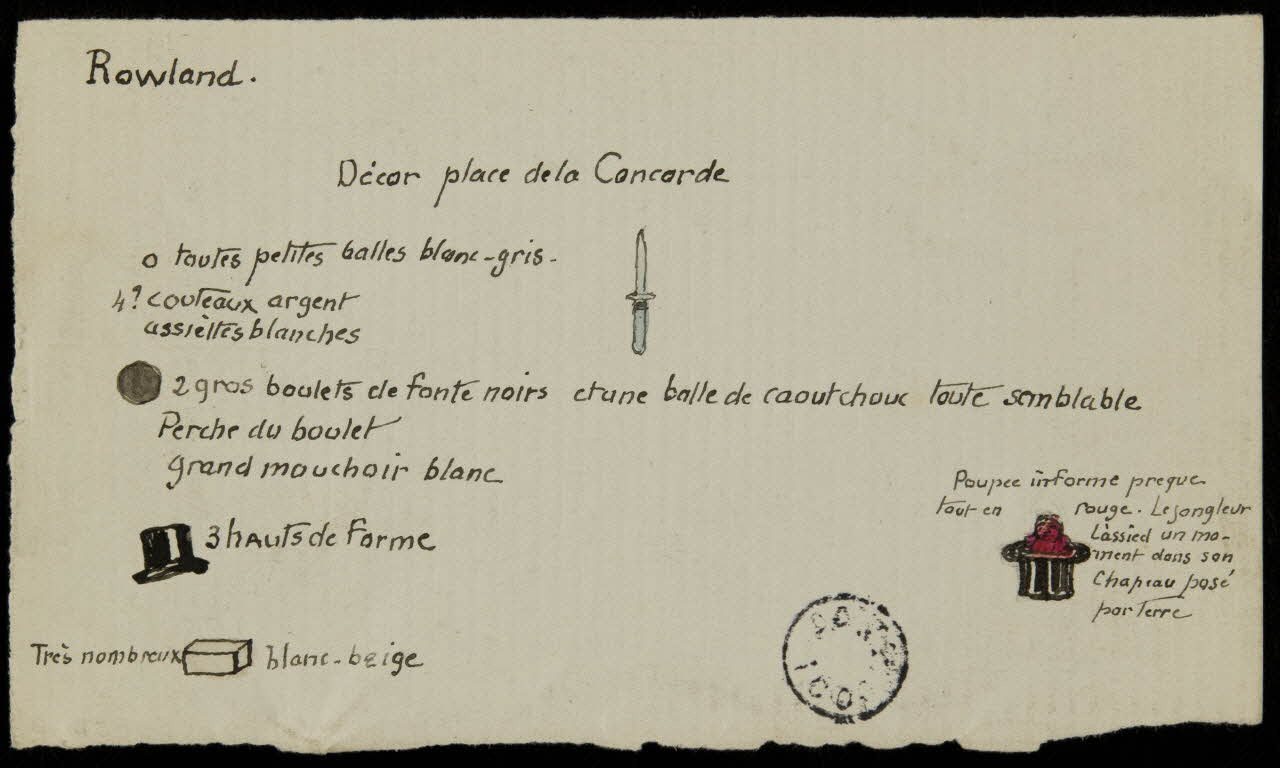 Rowland.
Décor place de la Concorde
o toutes petites balles blanc-gris.
4? couteaux argent
assiettes blanches
2 gros boulets de fonte noirs et une balle de caoutchouc toute semblable
Perche du boulet
Grand mouchoir blanc
3 hauts de forme
Poupée informe preque
tout en rouge. Le jongleur
l'assied un mo-
ment dans son
Chapeau posé
par Terre
Très nombreux blanc-beige